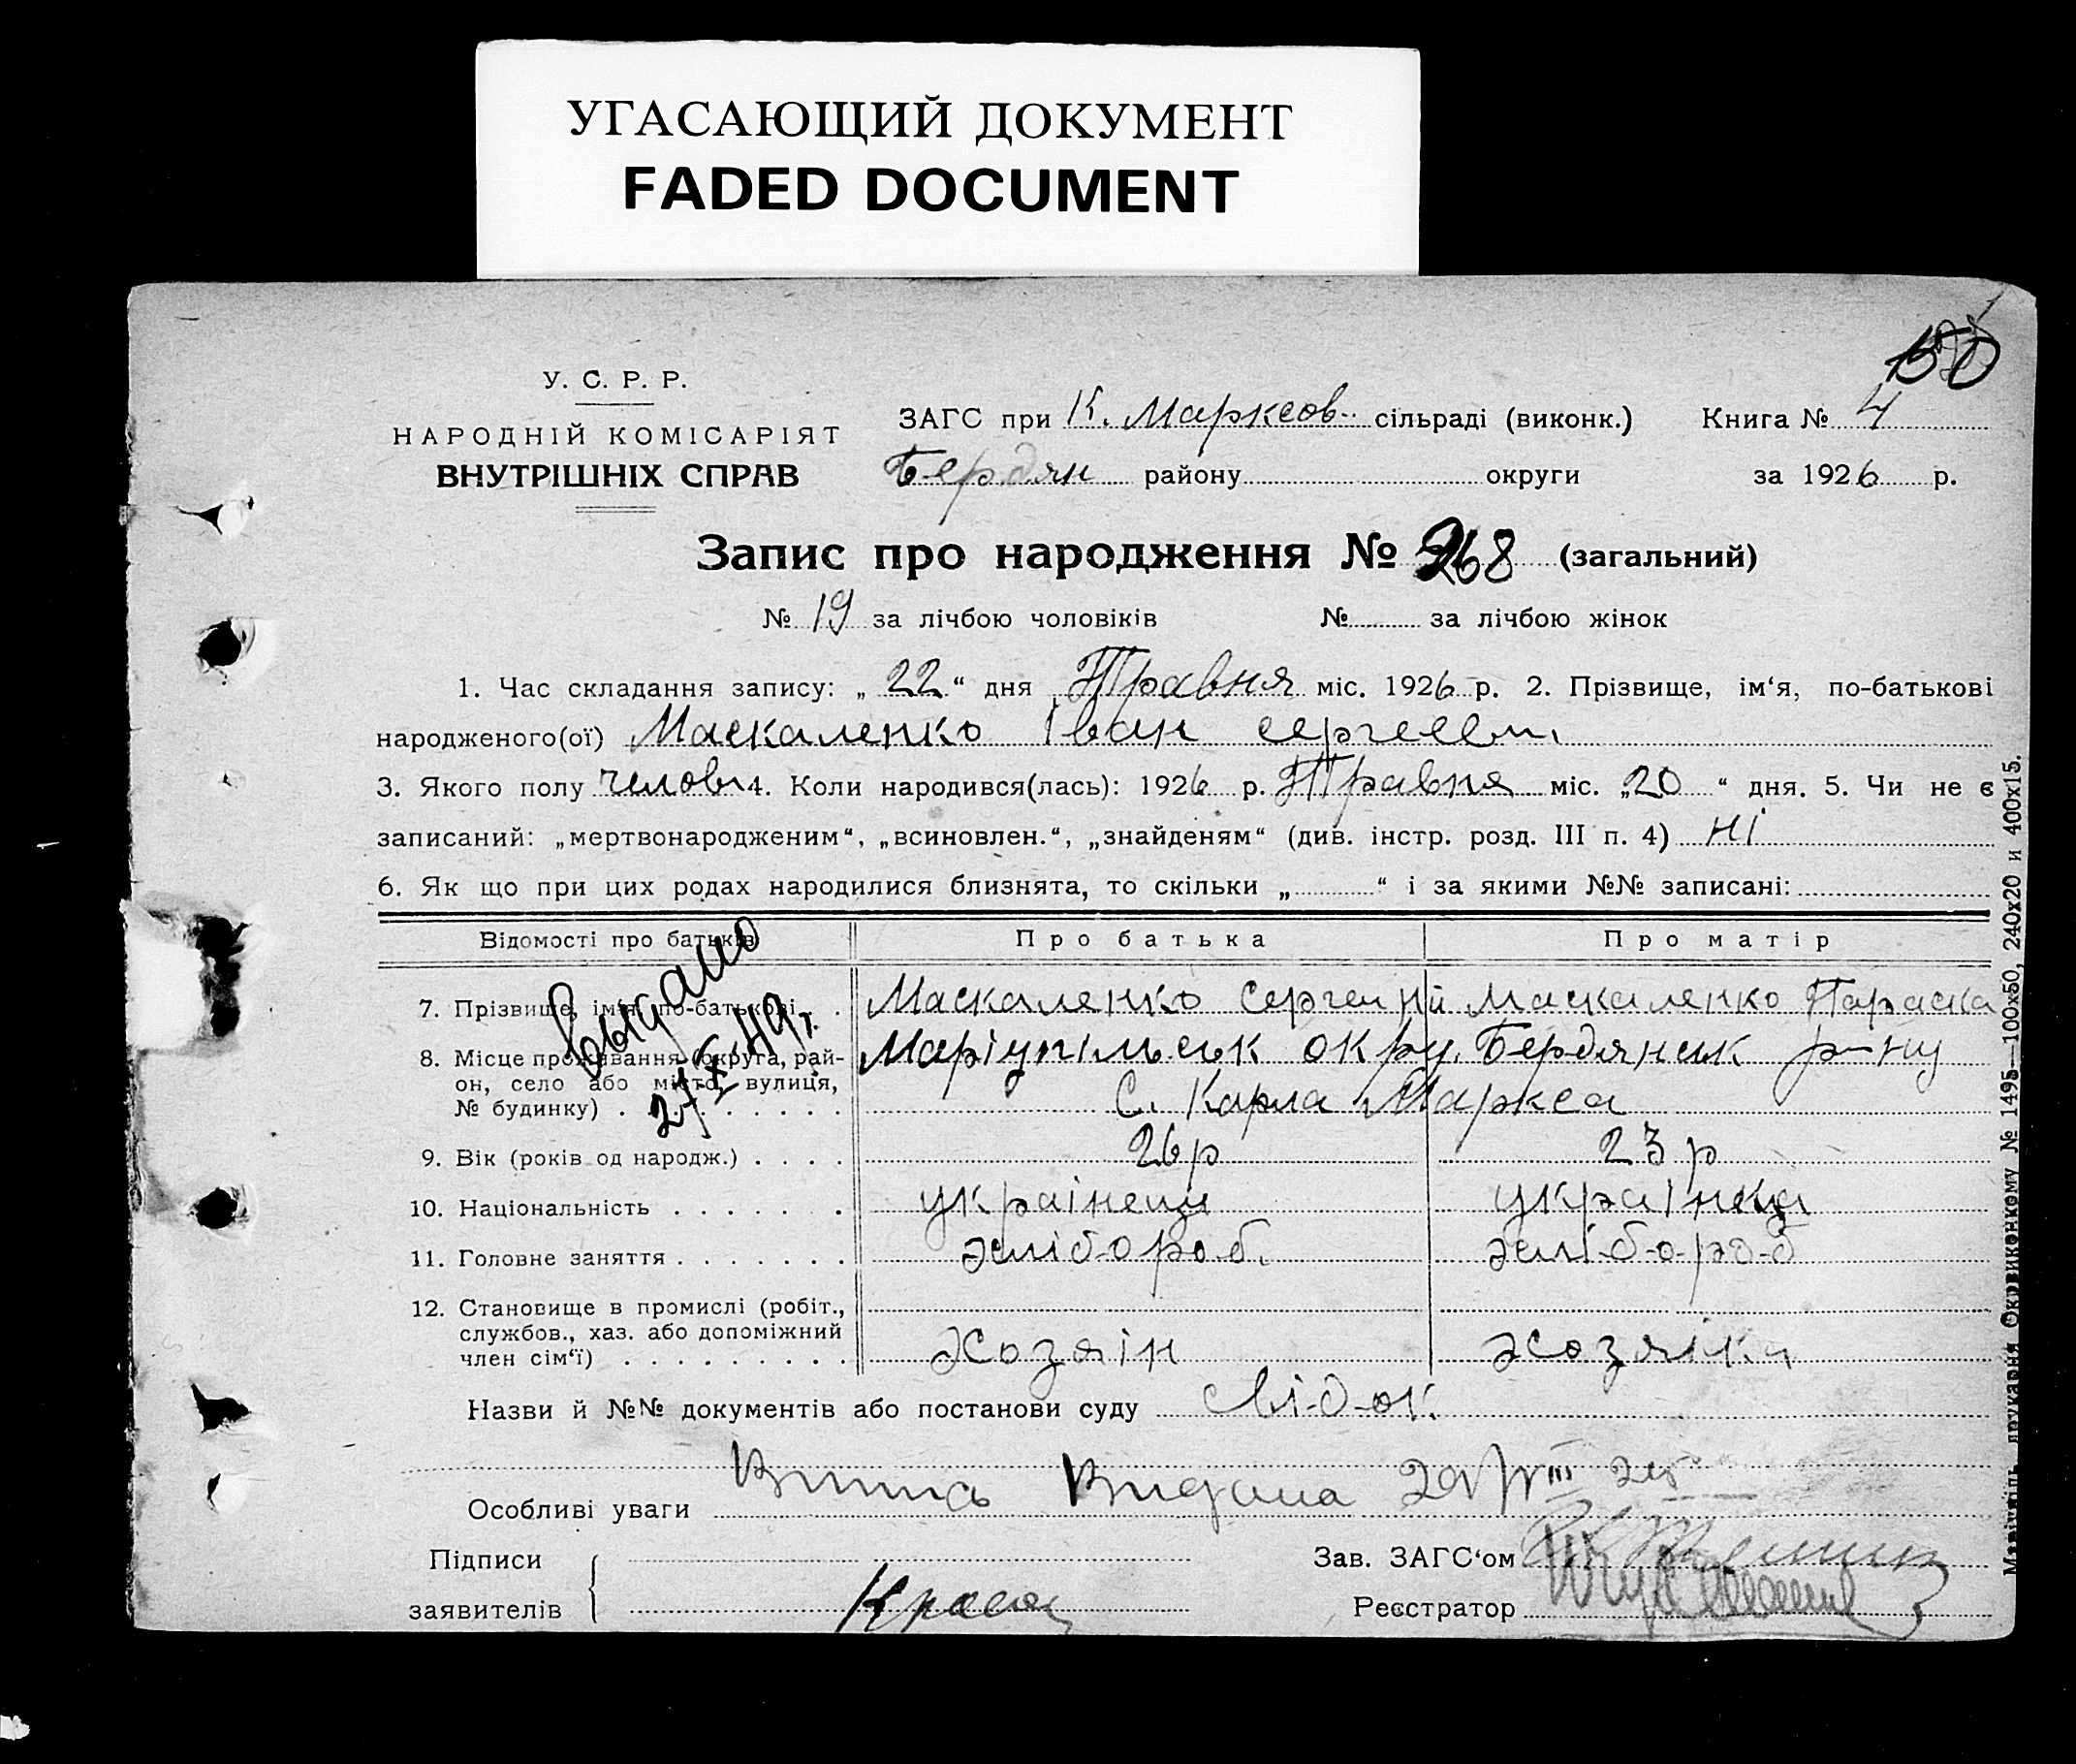 УГАСАЮЩИЙ ДОКУМЕНТ
FADED DOCUMENT
У. С. Р. Р.
НАРОДНІЙ КОМІСАРІЯТ
ВНУТРІШНІХ СПРАВ
ЗАГС при К. Марксов. сільраді (виконк.) Книга № 4
Бердян району округи за 1926 р.
Запис про народження № 268 (загальний)
№ 19 за лічбою чоловіків № за лічбою жінок
1. Час складання запису: „22“ дня Травня міс. 1926 р. 2. Прізвище, ім‘я, по-батькові
народженого(ої) Маскаленко Іван
3. Якого полу 4. Коли народився(лась): 1926 р. Травня міс. „20“ дня. 5. Чи не є
записаний: „мертвонародженим“, „всиновлен.“, „знайденям“ (див. інстр. розд. III п. 4) Ні
6. Як що при цих родах народилися близнята, то скільки „ “ і за якими №№ записані:
Відомості про батьків Про батька Про матір
7. Прізвище, ім‘я, по-батькові Маскаленко Маскаленко Параска
8. Місце проживання (округа, рай-
он, село або місто, вулиця,
№ будинку) Маріупільськ окру. Бердянськ р-ну
С. Карла Маркса
Выдано
9. Вік (років од народж.) 26 р 23 р
10. Національність українец українка
11. Головне заняття хлібороб. хлібороб
12. Становище в промислі (робіт.,
службов., хаз. або допоміжний
член сім‘ї) Хозяін Хозяіка
Назви й №№ документів або постанови суду Свідок.
Особливі уваги Видана
Підписи
заявителів
Зав. ЗАГС‘ом
Реєстратор
Маріюпіль, друкарня Окрвиконкому № 1495—100х50, 240х20 и 400х15.